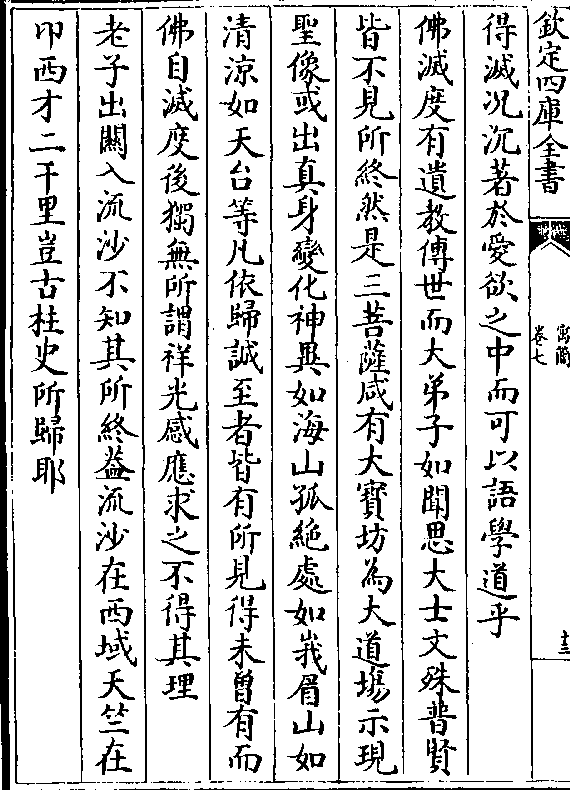 欽定四庫全書
寓簡
卷七
十三
得滅况沉著於愛欲之中而可以語學道乎
佛滅度有遺教傳世而大弟子如聞思大士文殊普賢
皆不見所終然是三菩薩咸有大寳坊為大道塲示現
聖像或出真身變化神異如海山孤絶處如峩眉山如
清涼如天台等凡依歸誠至者皆有所見得未曾有而
佛自滅度後獨無所謂祥光感應求之不得其理
老子出關入流沙不知其所終葢流沙在西域天竺在
卬西才二千里豈古柱史所歸耶